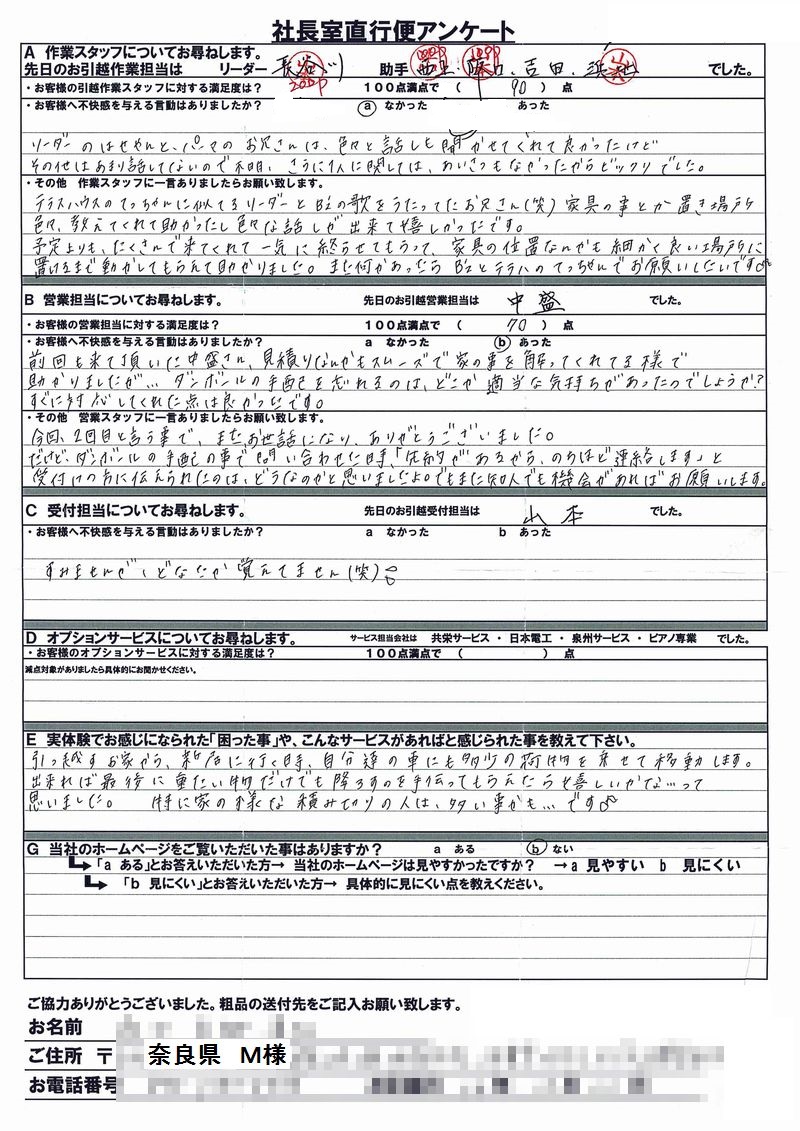 社長室直行便アンケート
A 作業スタッフについてお尋ねします。
先日のお引越作業担当は リーダー 長谷川 助手 西上・阪口、吉田、浜地 でした。
・お客様の引越作業スタッフに対する満足度は? 100点満点で ( 90 ) 点
・お客様へ不快感を与える言動はありましたか? a なかった あった
リーダーのはせやんと、パーマのお兄さんは、色々と話しも聞かせてくれて良かったけど
その他はあまり話してないので不明、さらに1人に関しては、あいさつもなかったからビックリでした。
・その他 作業スタッフに一言ありましたらお願い致します。
テラスハウスのてっちゃんに似てるリーダーとB'zの歌をうたってたお兄さん(笑)家具の事とか置き場所
色々、教えてくれて助かったし色々な話しが出来て嬉しかったです。
予定よりも、たくさんで来てくれて一気に終らせてもらって、家具の位置なんかも細かく良い場所に
置けるまで動かしてもらえて助かりました。また何かあったらB'zとテラハのてっちゃんでお願いしたいです
B 営業担当についてお尋ねします。 先日のお引越営業担当は 中盛 でした。
・お客様の営業担当に対する満足度は? 100点満点で ( 70 ) 点
・お客様へ不快感を与える言動はありましたか? a なかった b あった
前回も来て頂いた中盛さん、見積りなんかもスムーズで家の事を解ってくれてる様で
助かりましたが… ダンボールの手配を忘れるのは、どこか適当な気持ちがあったのでしょうか?
すぐに対応してくれた点は良かったです。
・その他 営業スタッフに一言ありましたらお願い致します。
今回、2回目と言う事で、またお世話になり、ありがとうございました。
だけど、ダンボールの手配の事で問い合わせた時、「失約があるから、のちほど連絡します」と
受付けの方に伝えられたのは、どうなのかと思いましたよ。でもまた知人でも機会があればお願いします。
C 受付担当についてお尋ねします。 先日のお引越受付担当は 山本 でした。
・お客様へ不快感を与える言動はありましたか? a なかった b あった
すみませんが、どなたか覚えてません(笑)
D オプションサービスについてお尋ねします。 サービス担当会社は 共栄サービス ・ 日本電工 ・ 泉州サービス ・ ピアノ専業 でした。
・お客様のオプションサービスに対する満足度は? 100点満点で ( ) 点
減点対象がありましたら具体的にお聞かせください。
E 実体験でお感じになられた「困った事」や、こんなサービスがあればと感じられた事を教えて下さい。
引っ越すお家から、新居に行く時、自分達の車にも多少の荷物を乗せて移動します。
出来れば最後に重たい物だけでも降ろすのを手伝ってもらえたら嬉しいかな…って
思いました。 特に家の様な積み切りの人は、多い事かも…です
G 当社のホームページをご覧いただいた事はありますか? a ある b ない
「a ある」とお答えいただいた方→ 当社のホームページは見やすかったですか? →a 見やすい b 見にくい
「b 見にくい」とお答えいただいた方→ 具体的に見にくい点を教えください。
ご協力ありがとうございました。粗品の送付先をご記入お願い致します。
お名前
ご住所 〒 奈良県 M様
お電話番号